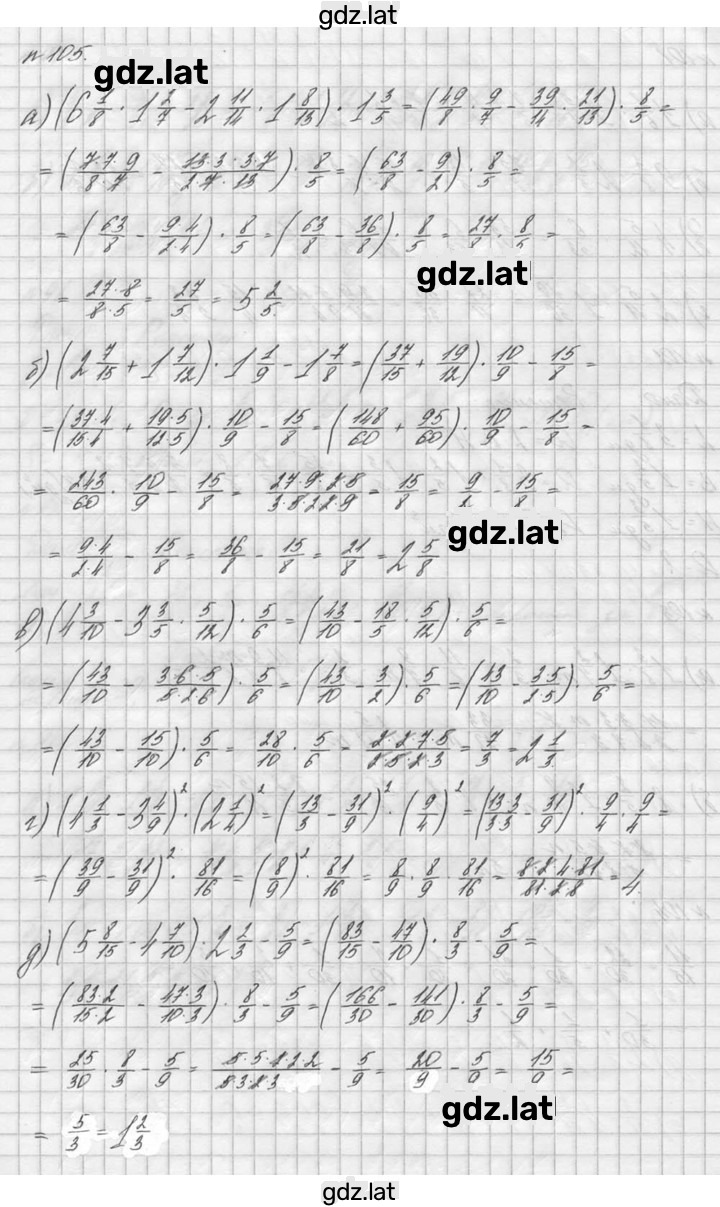 gdz.lat
n 105.
gdz.lat
а) (6 1/8 · 1 2/7 - 2 11/14 · 1 8/13) · 1 3/5 = (49/8 · 9/7 - 39/14 · 21/13) · 8/5 =
= (7·7·9/8·7 - 13·3·3·7/2·7·13) · 8/5 = (63/8 - 9/2) · 8/5 =
= (63/8 - 9·4/2·4) · 8/5 = (63/8 - 36/8) · 8/5 = 27/8 · 8/5 =
gdz.lat
= 27·8/8·5 = 27/5 = 5 2/5.
б) (2 7/15 + 1 7/12) · 1 1/9 - 1 7/8 = (37/15 + 19/12) · 10/9 - 15/8 =
= (37·4/15·4 + 19·5/12·5) · 10/9 - 15/8 = (148/60 + 95/60) · 10/9 - 15/8 =
= 243/60 · 10/9 - 15/8 = 27·9·2·5/3·5·2·2·9 - 15/8 = 9/2 - 15/8 =
gdz.lat
= 9·4/2·4 - 15/8 = 36/8 - 15/8 = 21/8 = 2 5/8
в) (4 3/10 - 3 3/5 · 5/12) · 5/6 = (43/10 - 18/5 · 5/12) · 5/6 =
= (43/10 - 3·6·5/5·2·6) · 5/6 = (43/10 - 3/2) · 5/6 = (43/10 - 3·5/2·5) · 5/6 =
= (43/10 - 15/10) · 5/6 = 28/10 · 5/6 = 2·2·7·5/2·5·2·3 = 7/3 = 2 1/3.
г) (4 1/3 - 3 4/9)² · (2 1/4)² = (13/3 - 31/9)² · (9/4)² = (13·3/3·3 - 31/9)² · 9/4 · 9/4 =
= (39/9 - 31/9)² · 81/16 = (8/9)² · 81/16 = 8/9 · 8/9 · 81/16 = 8·2·4·81/81·2·8 = 4
д) (5 8/15 - 4 7/10) · 2 2/3 - 5/9 = (83/15 - 47/10) · 8/3 - 5/9 =
= (83·2/15·2 - 47·3/10·3) · 8/3 - 5/9 = (166/30 - 141/30) · 8/3 - 5/9 =
= 25/30 · 8/3 - 5/9 = 5·5·2·2·2/5·3·2·3 - 5/9 = 20/9 - 5/9 = 15/9 =
gdz.lat
= 5/3 = 1 2/3
gdz.lat